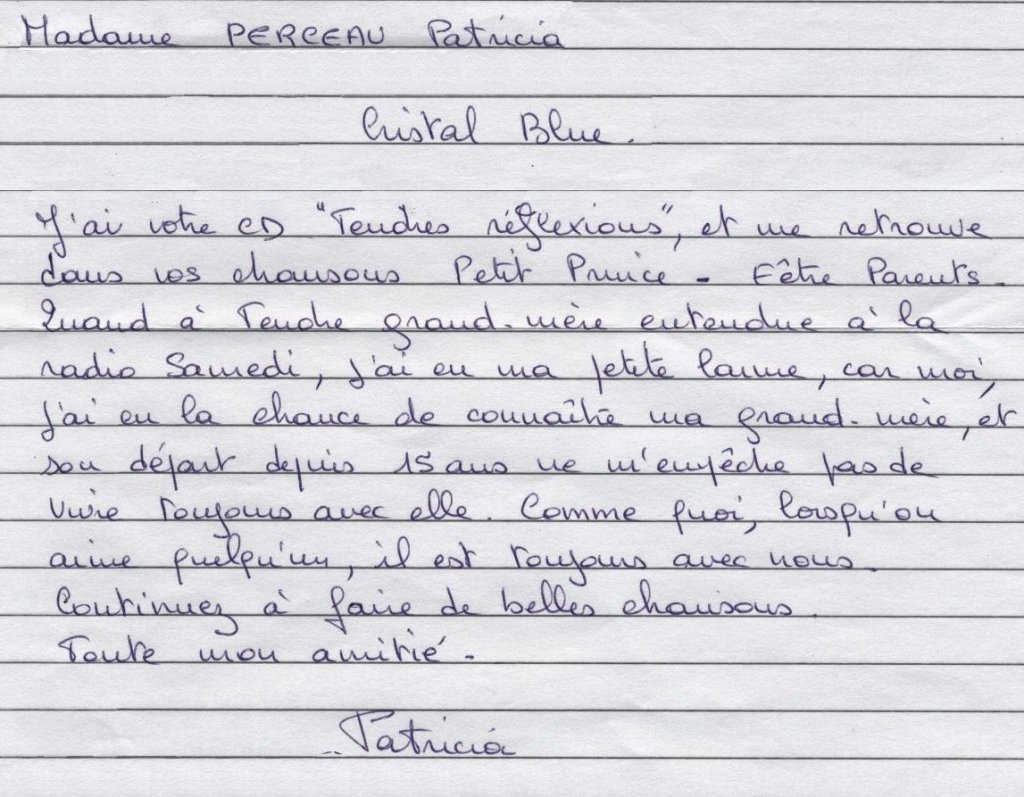 Madame PERCEAU Patricia
Cristal Blue.
J'ai votre CD "Tendres réflexions", et me retrouve
dans vos chansons Petit Prince - Eêtre Parents.
Quand à Tendre grand-mère entendue à la
radio Samedi, j'ai eu ma petite larme, car moi,
j'ai eu la chance de connaître ma grand-mère, et
son départ depuis 15 ans ne m'empêche pas de
vivre toujours avec elle. Comme quoi, lorsqu'on
aime quelqu'un, il est toujours avec nous.
Continuez à faire de belles chansons.
Toute mon amitié -
Patricia